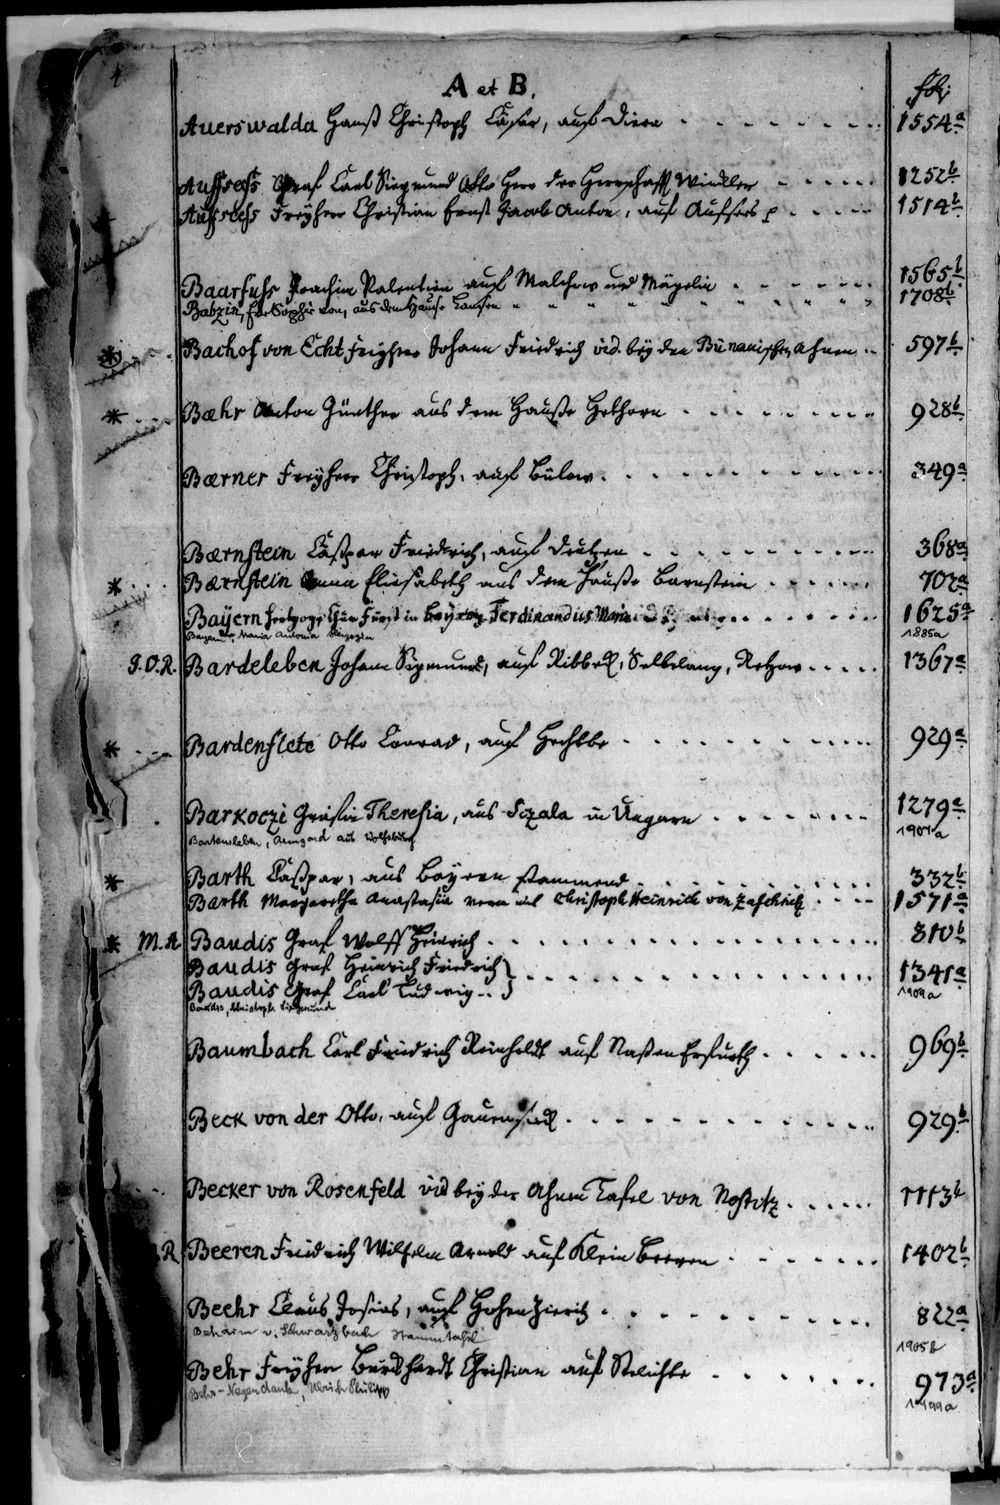 4
A et B.
fol:
Auerswalda Hanß Christoph Cäsar, auf Diera 1554a
Aufsess Graf Carl Siegmund Otto Herr der Herrschafft 1252b
Aufsess Freyherr Christian Ernst Jacob Anton, auf Aufsess 1514b
Baarfuhs Joachim Valentin auf Malchow und Mögelin 1565b
Babzin, von, aus dem Hause 1708b
Bachof von Echt Freyherr Johann Friedrich vid. bey den Bünauischen Ahnen 597b
* Bæhr Anton Günther aus dem Hauße 928b
Bærner Freyherr Christoph, auf Bülow 349a
Bærnstein Caßpar Friedrich, auf 368a
* Bærnstein Anna Elisabeth aus dem Hauße Barnstein 702a
Baÿern Hertzogs Chur Fürst in Ferdinandus Maria 1625a
Bayern, Maria Antonia Herzogin 1885a
J.O.R. Bardeleben Johann Sigmund, auf Ribbeck, Selbelang, Retzow 1367a
* Bardenflete Otto Conrad, auf 929a
Barkoczi Gräfin Theresia, aus Szala in Ungarn 1279a
Bartensleben, Armgard aus Wolfsburg 1901a
* Barth Caßpar, aus Bayern stammend 332b
Barth Margaretha Anastasia verm. mit Christoph Heinrich von Zaschnitz 1571a
* M.R. Baudis Graf Wolff Heinrich 810b
Baudis Graf Heinrich Friedrich
Baudis Graf Carl Ludwig 1341a
Baudis, Christoph Siegmund 1904a
Baumbach Carl Friedrich Reinholdt auf Naßen Erfurth 969b
Beck von der Otto, auf 929b
Becker von Rosenfeld vid bey der Ahnen Tafel von Nostitz 1113b
R Beeren Friedrich Wilhelm Arnold auf Klein Beeren 1402b
Beehr Claus Josias, auf Hohen 822a
Behaim v. Schwarzbach Stammtafel 1905b
Behr Freyherr Burchhardt Christian auf Stellichte 973a
Behr-Negendank, Ulrich Philipp